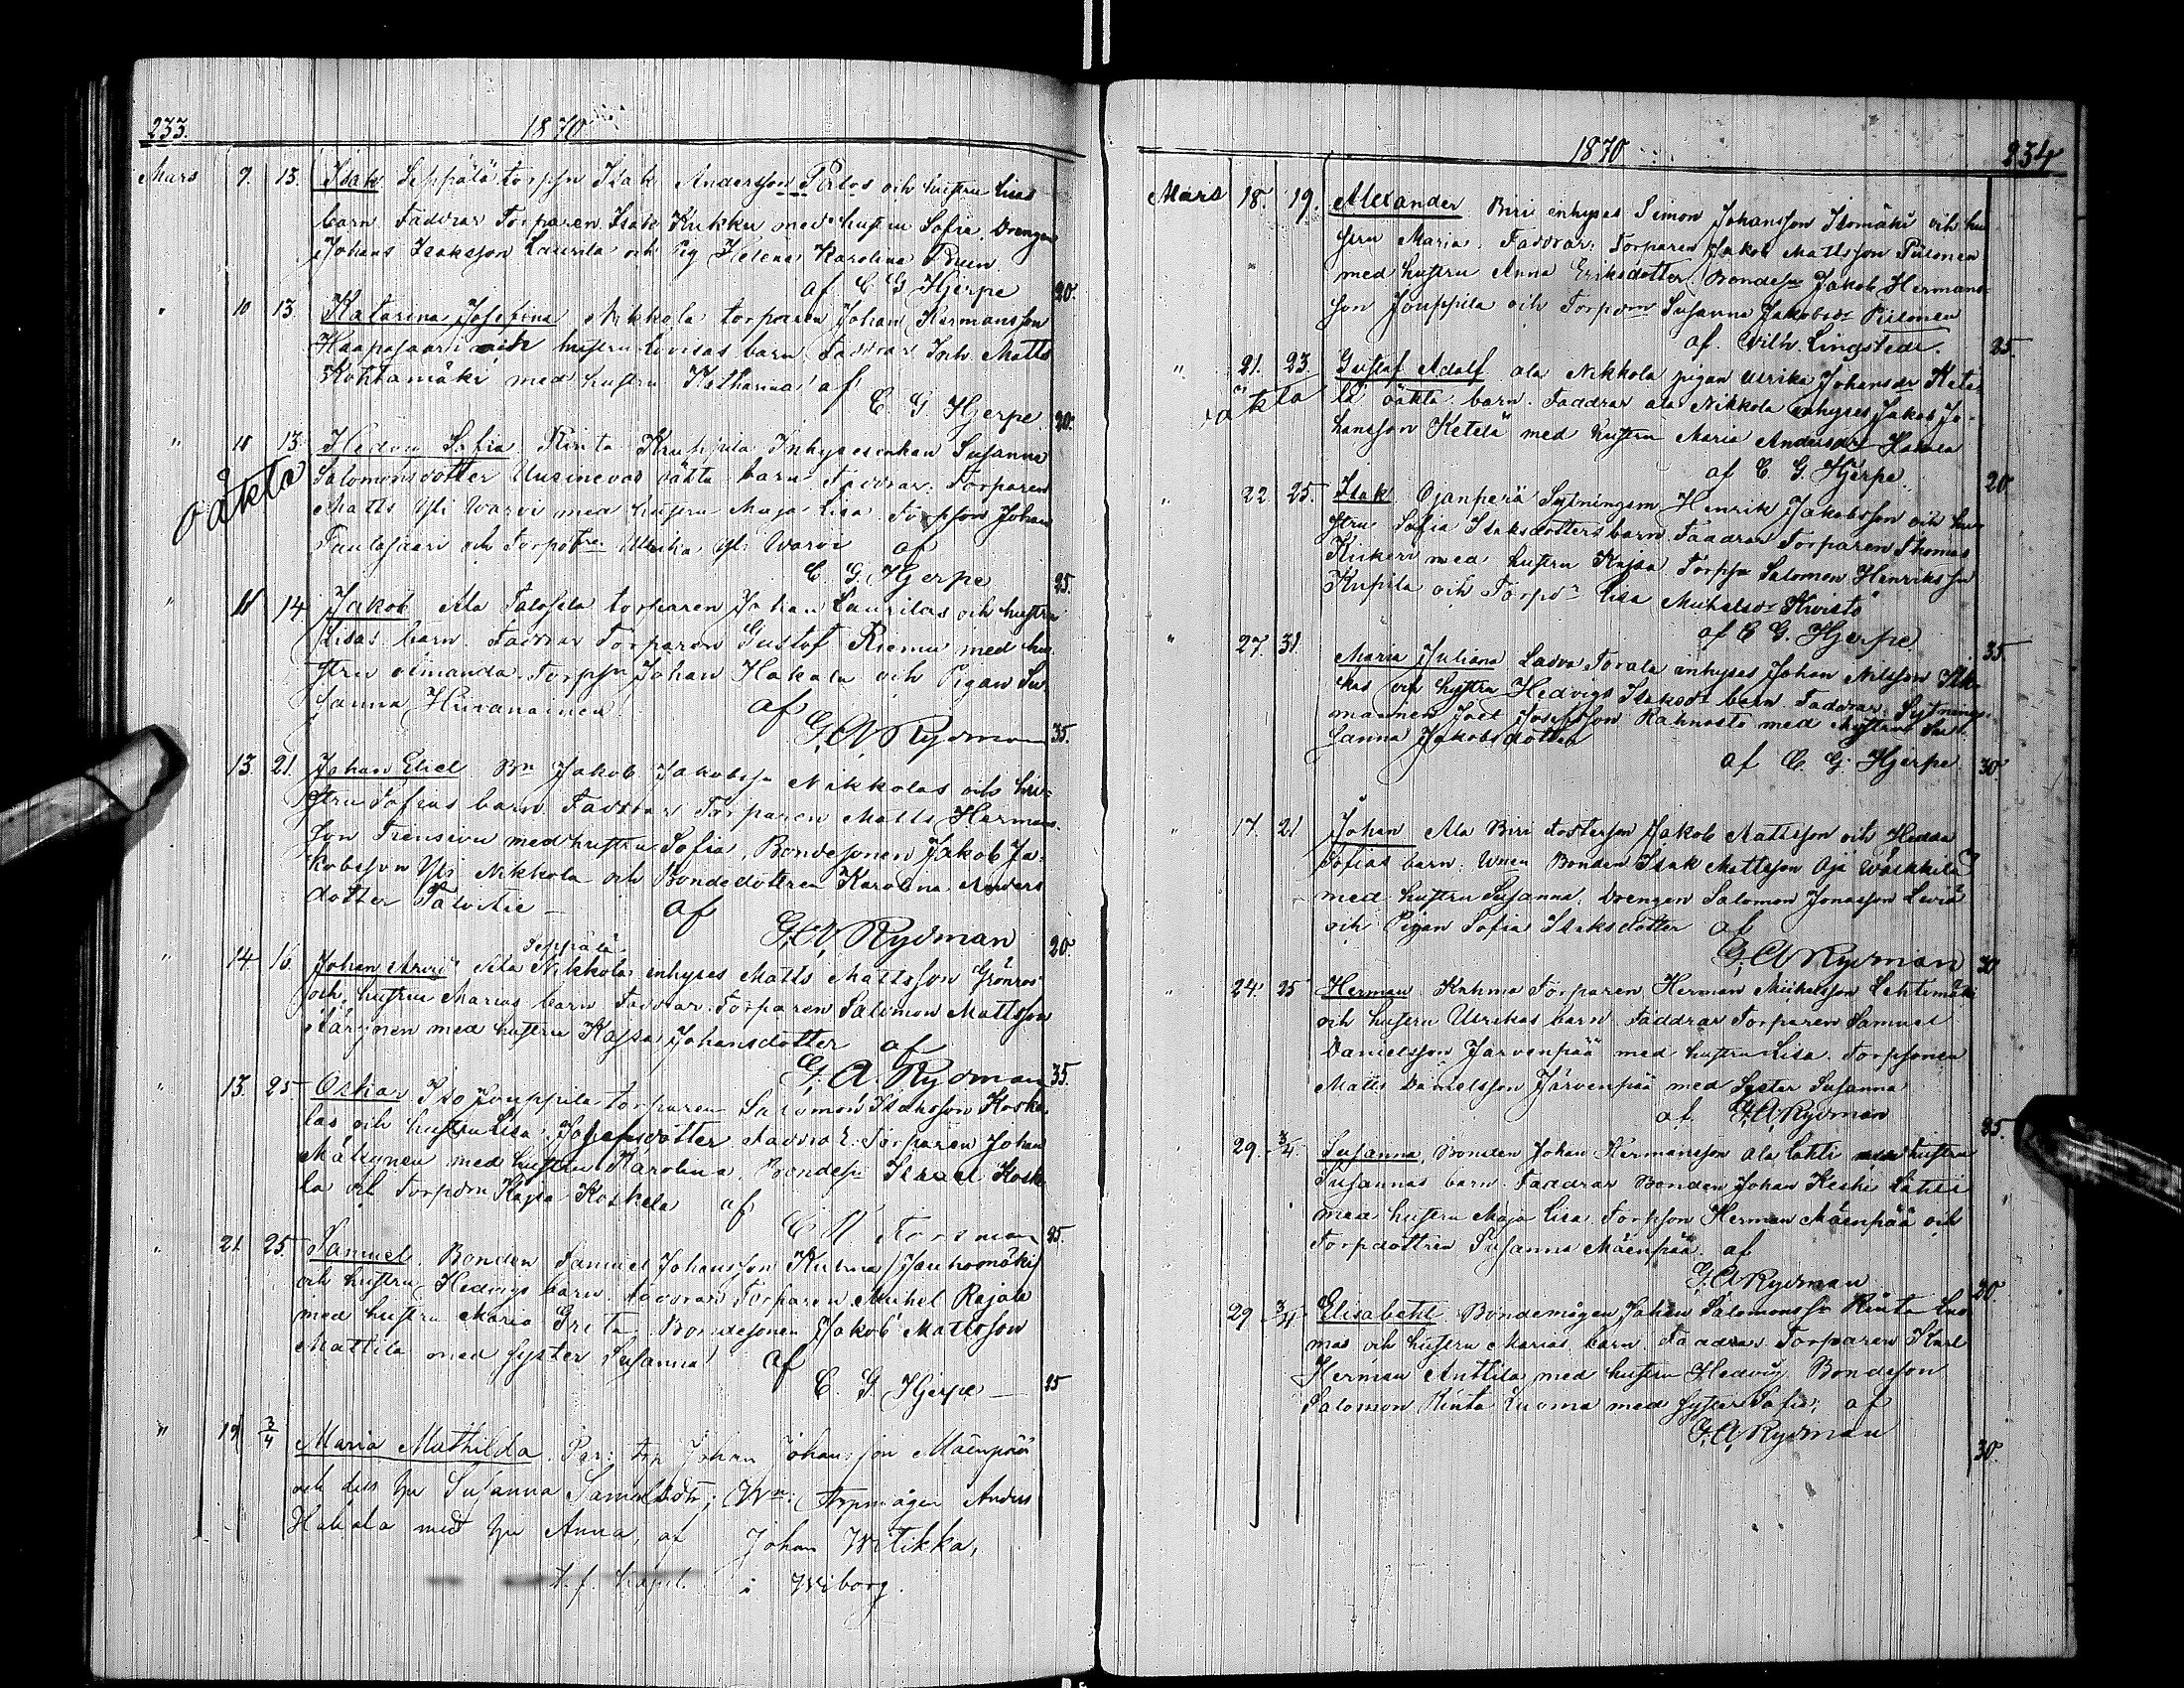 233.
1870
Mars 9. 13. Isak Seppälä torpsn Isak Andersson Palos och hustru Lisas
barn Faddrar Torparen Isak Kukku med hustru Sofia. Drengen
Johans Isaksson Laurila och Pig Helena Karolina
af C G Hjerpe 20.
" 10 13. Katarina Josefina Nikkola torparen Johan Hermansson
Haapasaari och hustru Lovisas barn Faddrar Inh. Matts
Kohtamäki med hustru Katharina af
C. G Hjerpe. 20.
" 10 13. Hedvig Sofia Rinta Kruppila Inhysesenkan Susanna
oäkta
Salomonsdotter Uusinevas oäkta barn Faddrar: Torparen
Matts Yli Warvi med hustru Maja Lisa. Torpson Johan
Tautasaari och Torpdtrn Ulrika Yli Warvi af
C. G. Hjerpe 25.
" 11 14 Jakob Ala Talosela torparen Johan Laurilas och hustru
Lisas barn. Faddrar Torparen Gustof Riemu med hu-
stru Amanda. Torpsn Johan Hakala och Pigan Su-
sanna Hiivanainen af
G. A Rydman 35.
13. 21. Johan Eliel Bn Jakob Jakobssn Nikkolas och hu-
stru Sofias barn. Faddrar Torparen Matts Hermans-
son Trensioni med hustru Sofia. Bondesonen Jakob Ja-
kobsson Yli Nikkola och Bondedottren Karolina Anders
dotter Talvitie – af
G. A Rydman 20.
Seppälä
" 14 16. Johan Arvid Ala Nikkola enhyses Matts Mattsson Grönros
och hustru Marias barn Faddrar. Torparen Salomon Mattsson
Kärynen med hustru Kajsa Johansdotter af
G. A. Rydman 35.
" 13. 25 Oskar Iso Jouppila torparen Salomon Isaksson Koske-
las och hustru Lisa Josefsdotter Faddrar: Torparen Johan
Mälsynen med hustru Karolina. Bondesn Israel Koske-
la och Torpdrn Kajsa Koskela af
C M Forsman 25.
" 21 25. Samuel. Bonden Samuel Johansson Kuhna (Jauhomäki)
och hustru Hedvigs barn. Faddrar Torparen Mickel Rajala
med hustru Maria Greta. Bondesonen Jakob Mattsson
Mattila med syster Susanna af
C. G. Hjerpe – 25
" 19 3/4 Maria Mathilda. Par: torp Johan Johansson Mäenpää
och dess hu Susanna Samelsdtr; Wn: Torpmågen Anders
Hakala med hu Anna, af Johan Witikka,
t. f. kapel. i Wiborg.
1870
234
Mars 18. 19. Alexander Biri enhyses Simon Johansson Isomäki och hu
stru Maria. Faddrar: Torparen Jakob Mattsson Piilonen
med hustru Anna Eriksdotter. Bondesn Jakob Hermans-
son Jouppila och Torpdrn Susanna Jakobsdr Piilonen
af Vilh. Lingstedt. 25.
" 21. 23. Gustaf Adolf ala Nikkola pigan Ulrika Johansdr Kete-
oäkta
lä oäkta barn. Faddrar ala Nikkola enhyses Jakob Jo-
hansson Ketelä med hustru Maria Andersdr Hakala
af C. G. Hjerpe. 20
" 22 25. Isak Ojanperä Sytningsm Henrik Jakobsson och hu-
stru Sofia Isaksdotters barn. Faddrar Torparen Thomas
Kiikeri med hustru Kajsa Torpsn Salomon Henriksson
Kupila och Torpdr Lisa Michelsdr Kivistö
af C G. Hjerpe 35.
" 27. 31. Maria Juliana Ladva Torala inhyses Johan Nilsson
kas och hustru Hedvigs Isaksdr barn. Faddrar. Sytnings-
mannen Joel Josefsson Rahnasto med hustru Su-
sanna Jakobsdotter
af C. G. Hjerpe 30.
" 17. 21 Johan Ala Biri fosterson Jakob Mattsson och Hedda
Sofias barn: Wnen Bonden Isak Mattsson Oja Wäskkilä
med hustru Susanna. Drengen Salomon Jonasson Liviä
och Pigan Sofia Isaksdotter af
G. A Rydman 30
" 24. 25 Herman Kuhma Torparen Herman Mickelsson Lehtimäki
och hustru Ulrikas barn. Faddrar Torparen Samuel
Danielsson Järvenpää med hustru Lisa. Torpsonen
Matts Danielsson Järvenpää med Syster Susanna
af G. A. Rydman 25.
29. 3/4 Susanna, Bonden Johan Hermansson ala Lahti hustru
Susannas barn. Faddrar Bonden Johan Keski Lahti
med hustru Maja Lisa. Torpson Herman Mäenpää och
Torpdottren Susanna Mäenpää. af
G. A Rydman 20.
29 3/4 Elisabeth Bondemågen Johan Salomonssn Rinta Luo
mas och hustru Marias barn. Faddrar. Torparen Karl
Herman Anttila med hustru Hedvig Bondeson
Salomon Rinta Luoma med syster Sofia; af
G. A Rydman
30.